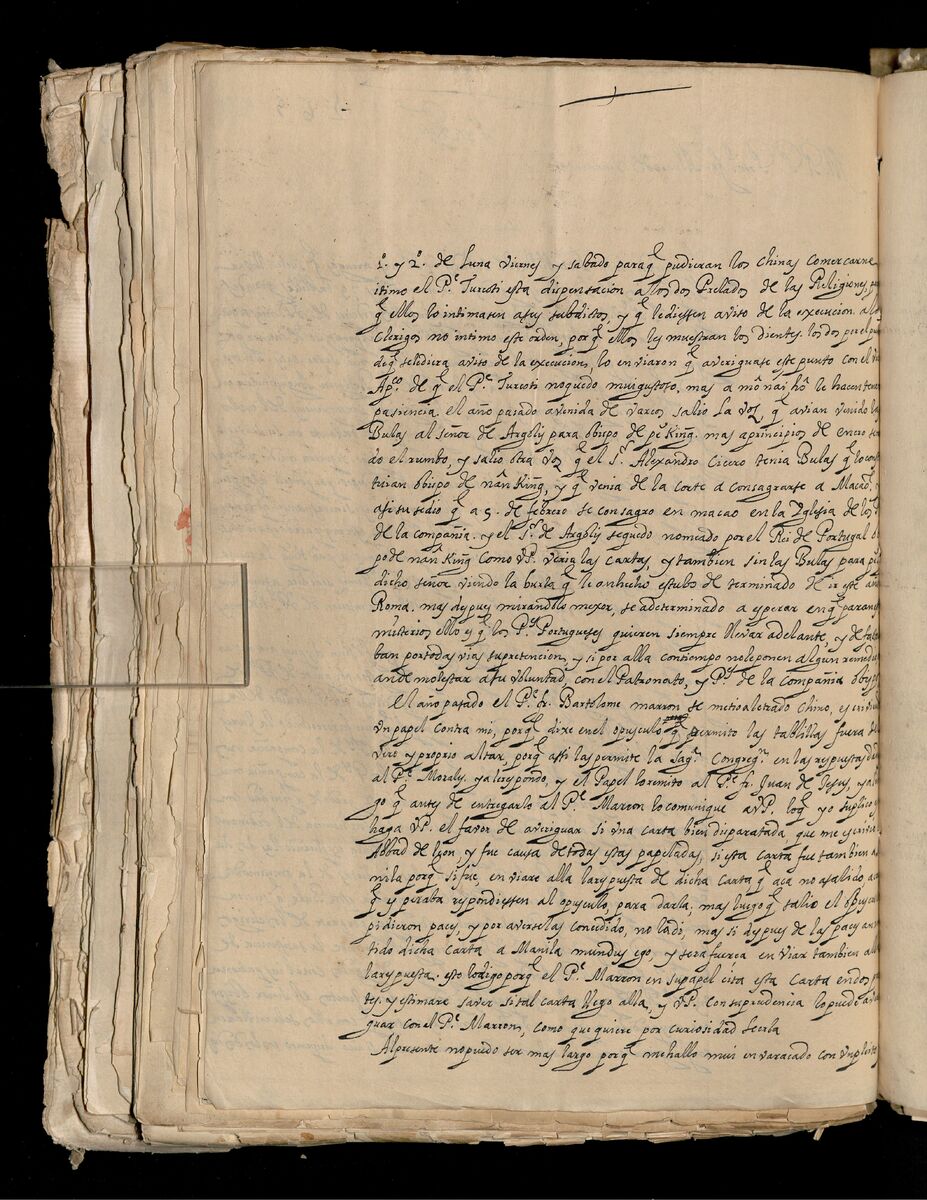 1º. y 2º. de Luna viernes y sabado paraq̃ pudieran los chinas comer carne
itimo el Pᵉ Turcoti esta dispensacion a los dos Prelados de las Religiones,
q̃ ellos lo intimasen asus subditos, y q̃ lediessen aviso de la execucion. a los
Clerigos no intimo este orden, porq̃ ellos les muestran los dientes. los dos
deq̃ selediera aviso de la execucion, lo enviaron q̃ averiguase este punto con el
Apᶜᵒ. de q̃ el Pᵉ Turcoti noquedo mui gustoso, mas a mõ nai hô le hacen tener
pasiencia. el año pasado avenida de varcos salio la voz, q̃ avian venido las
Bulas al señor de Argoly para obispo de peKing. mas aprincipios de enero
do el rumbo, y salio otra voz q̃ el Sʳ. Alexandro Cicero tenia Bulas q̃ lo
tuian obispo de nânKing, y q̃ venia de la corte a consagrarse a Macao,
asi susedio q̃ a 5. de febrero se consagro en macao en la Yglesia de los
de la compañia. y el Sʳ. de Argoly sequedo nomrado por el Rei de Portugal
po de nânKing como VP. veria las cartas, y tambien sin las Bulas para
dicho señor viendo la burla q̃ le an hecho estubo de terminado de ir este año
Roma. mas despues mirandolo mexor, se adeterminado a esperar en q̃ paran
misterios ellos y q̃ los Pˢ. Portugueses quieren siempre llevar adelante, y
ban portodas vias supretencion, y si por alla contiempo noleponen algun remedio
ande molestar a su voluntad, con el Patronato, y Pˢ. de la Compañia
El año pasado el Pᵉ fr. Bartolome marron se metio aletrado chino, escrivio
vn papel contra mi, porq̃ dixe en el opusculo q̃ permito las tablillas fuera
vero y proprio altar, porq̃ assi las permite la Sagᵃ. Congregⁿ. en las respuestas
al Pᵉ. Morales. ya le respondo, y el Papel lo remito al Pᵉ fr. Juan de Jesus,
go q̃ antes de entregarlo al Pᵉ Marron lo comunique a VP. loq̃ yo suplico
haga VP. el favor de averiguar si vna carta bien disparatada, que me
Abbad de leon, y fue causa de todas estas papeladas, si esta carta fue tambien a
nila porq̃ si fue, en viare alla la respuesta de dicha carta q̃ aca no asalido
q̃ esperaba respondiessen al opusculo, para darla, mas luego q̃ salio el
pidieron paces, y por averselas concedido, no la di, mas si despues de las paces an
tido dicha carta a Manila mundus ego, y sera fuerça en viar tambien
la respuesta. esto lo digo porq̃ el Pᵉ. Marron en supapel cita esta carta en dos
tes. y estimare saver si tal carta llego alla, y VP. con suprudencia lo puede
guar con el Pᵉ Marron, como que quiere por curiosidad leerla
Al presente no puedo ser mas largo porq̃ me hallo mui envaracado con vn